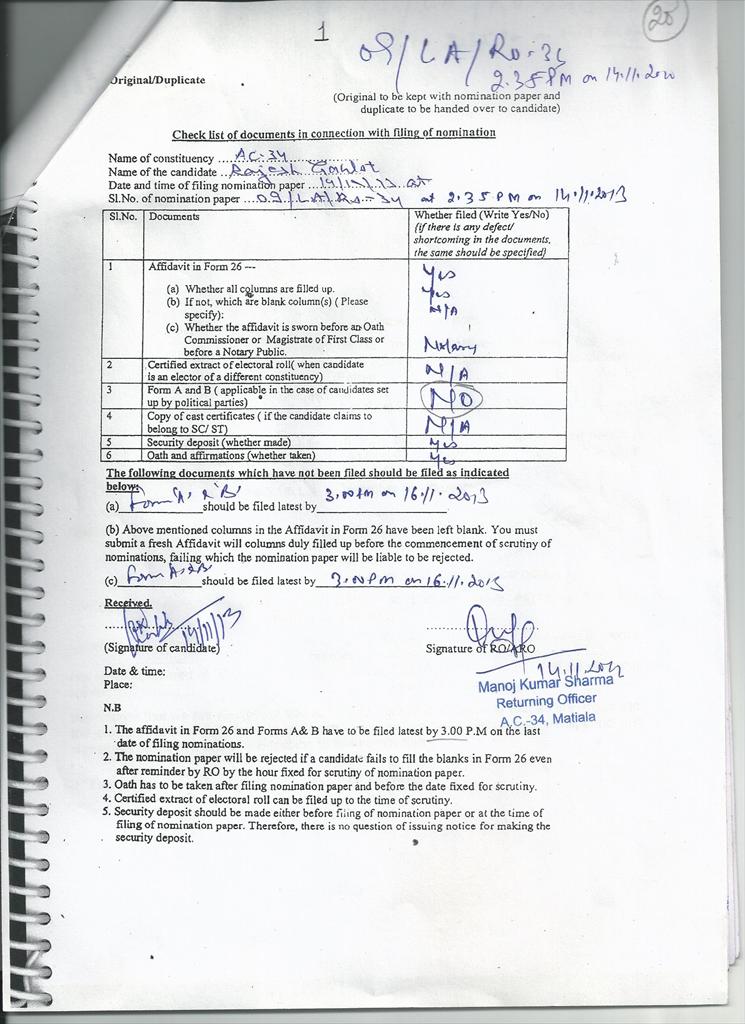 1
20
09/LA/RO-34
2.35 PM on 14.11.20
Original/Duplicate
(Original to be kept with nomination paper and
duplicate to be handed over to candidate)
Check list of documents in connection with filing of nomination
Name of constituency ....AC-34....
Name of the candidate ..Rajesh Gahlot
Date and time of filing nomination paper ...14/11/13 at
Sl.No. of nomination paper ...09/LA/RO-34 at 2.35 PM on 14.11.2013
Sl.No. Documents Whether filed (Write Yes/No)
(if there is any defect/
shortcoming in the documents,
the same should be specified)
1 Affidavit in Form 26 --- Yes
(a) Whether all columns are filled up. Yes
(b) If not, which are blank column(s) ( Please N/A
specify):
(c) Whether the affidavit is sworn before an Oath
Commissioner or Magistrate of First Class or
before a Notary Public. Notary
2 Certified extract of electoral roll( when candidate N/A
is an elector of a different constituency)
3 Form A and B ( applicable in the case of candidates set NO
up by political parties)
4 Copy of cast certificates ( if the candidate claims to N/A
belong to SC/ ST)
5 Security deposit (whether made) Yes
6 Oath and affirmations (whether taken) Yes
The following documents which have not been filed should be filed as indicated
below:
(a) Form 'A' & 'B' should be filed latest by 3.00 PM on 16.11.2013
(b) Above mentioned columns in the Affidavit in Form 26 have been left blank. You must
submit a fresh Affidavit will columns duly filled up before the commencement of scrutiny of
nominations, failing which the nomination paper will be liable to be rejected.
(c) Form A & B should be filed latest by 3.00 PM on 16.11.2013
Received.
14/11/13
(Signature of candidate) Signature of RO/ARO
14.11.2013
Date & time:
Place:
Manoj Kumar Sharma
Returning Officer
A.C.-34, Matiala
N.B
1. The affidavit in Form 26 and Forms A& B have to be filed latest by 3.00 P.M on the last
date of filing nominations.
2. The nomination paper will be rejected if a candidate fails to fill the blanks in Form 26 even
after reminder by RO by the hour fixed for scrutiny of nomination paper.
3. Oath has to be taken after filing nomination paper and before the date fixed for scrutiny.
4. Certified extract of electoral roll can be filed up to the time of scrutiny.
5. Security deposit should be made either before filing of nomination paper or at the time of
filing of nomination paper. Therefore, there is no question of issuing notice for making the
security deposit.